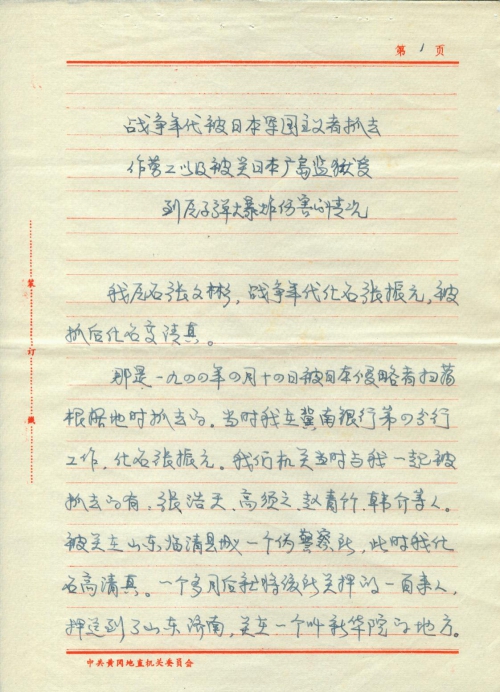 第 1 页
战争年代被日本军国主义者抓去
作劳工以及被关日本广岛监狱受
到原子弹大爆炸伤害的情况
我原名张文彬，战争年代化名张振元，被
抓后化名高清真。
那是一九四四年四月十四日被日本侵略者扫荡
根据地时抓去的。当时我在冀南银行第四分行
工作，化名张振元。我们机关当时与我一起被
抓去的有，张浩天、高须之、赵青竹、韩介等人。
被关在山东，临清县城一个伪警察所，此时我化
名高清真。一个多月后就将该所关押的一百来人，
押送到了山东济南，关在一个叫新华院的地方。
装
订
线
中共黄冈地直机关委员会